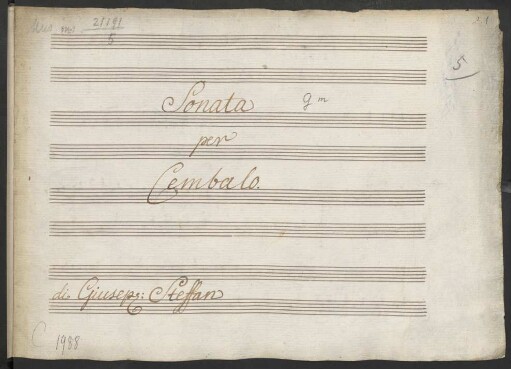 Mus. ms. 21191
5
5
Sonata g m
per
Cembalo.
di Giusepe: Steffan
C 1988